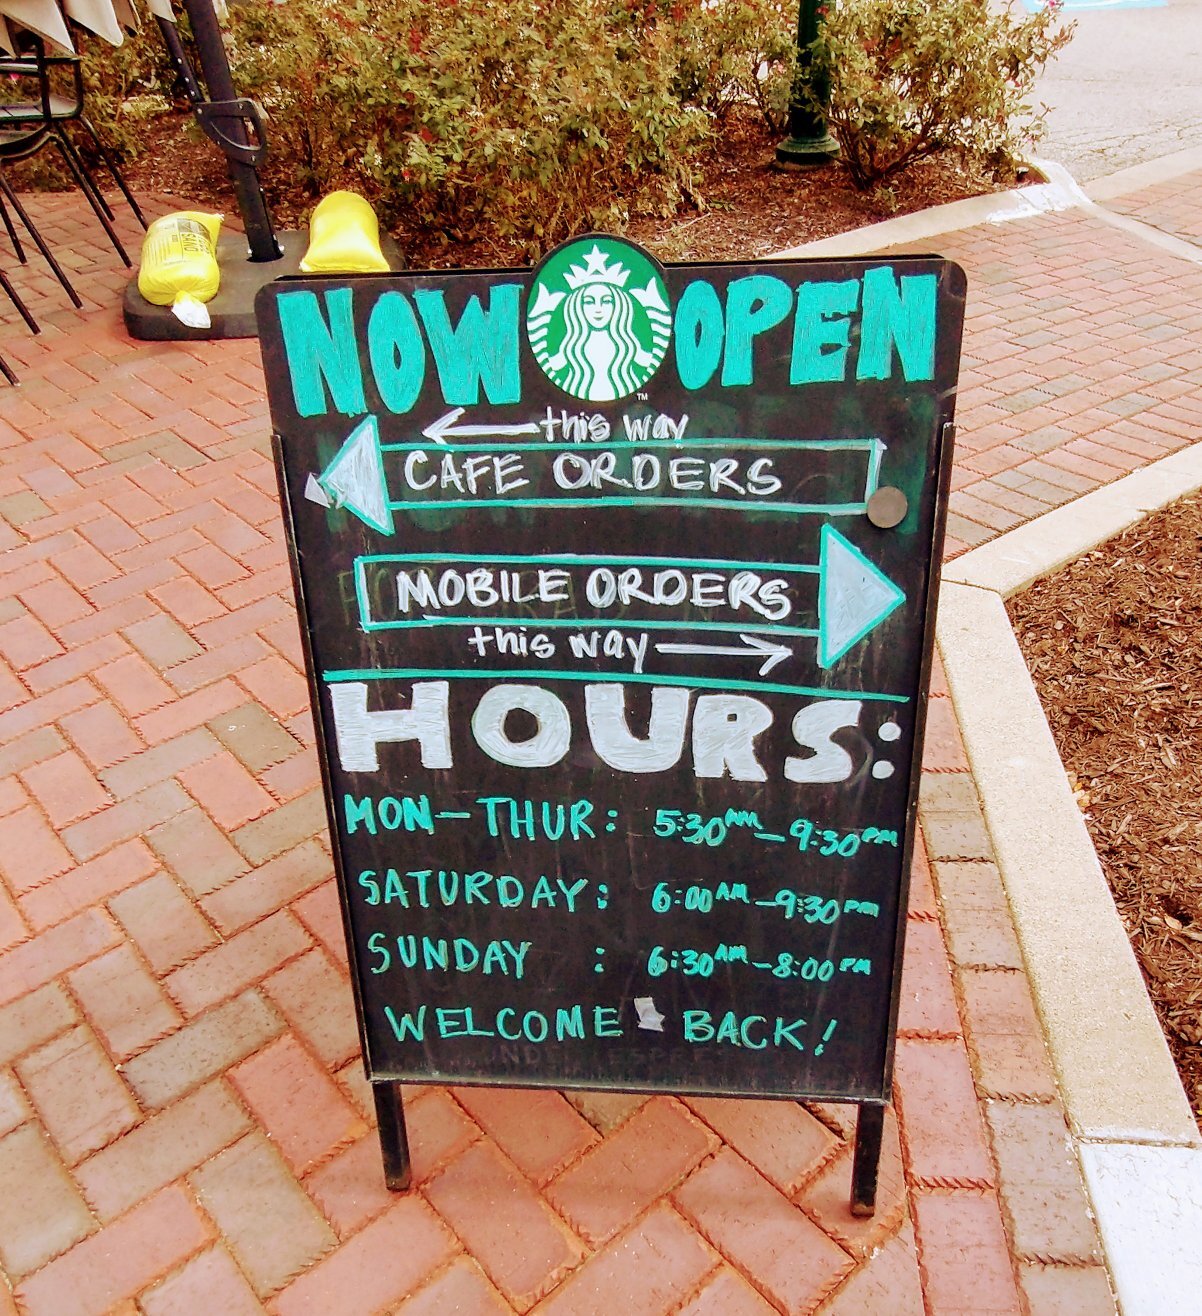 NOW OPEN
this way
CAFE ORDERS
MOBILE ORDERS
this way
HOURS:
MON-THUR: 5:30AM-9:30PM
SATURDAY: 6:00AM-9:30PM
SUNDAY : 6:30AM-8:00PM
WELCOME BACK!